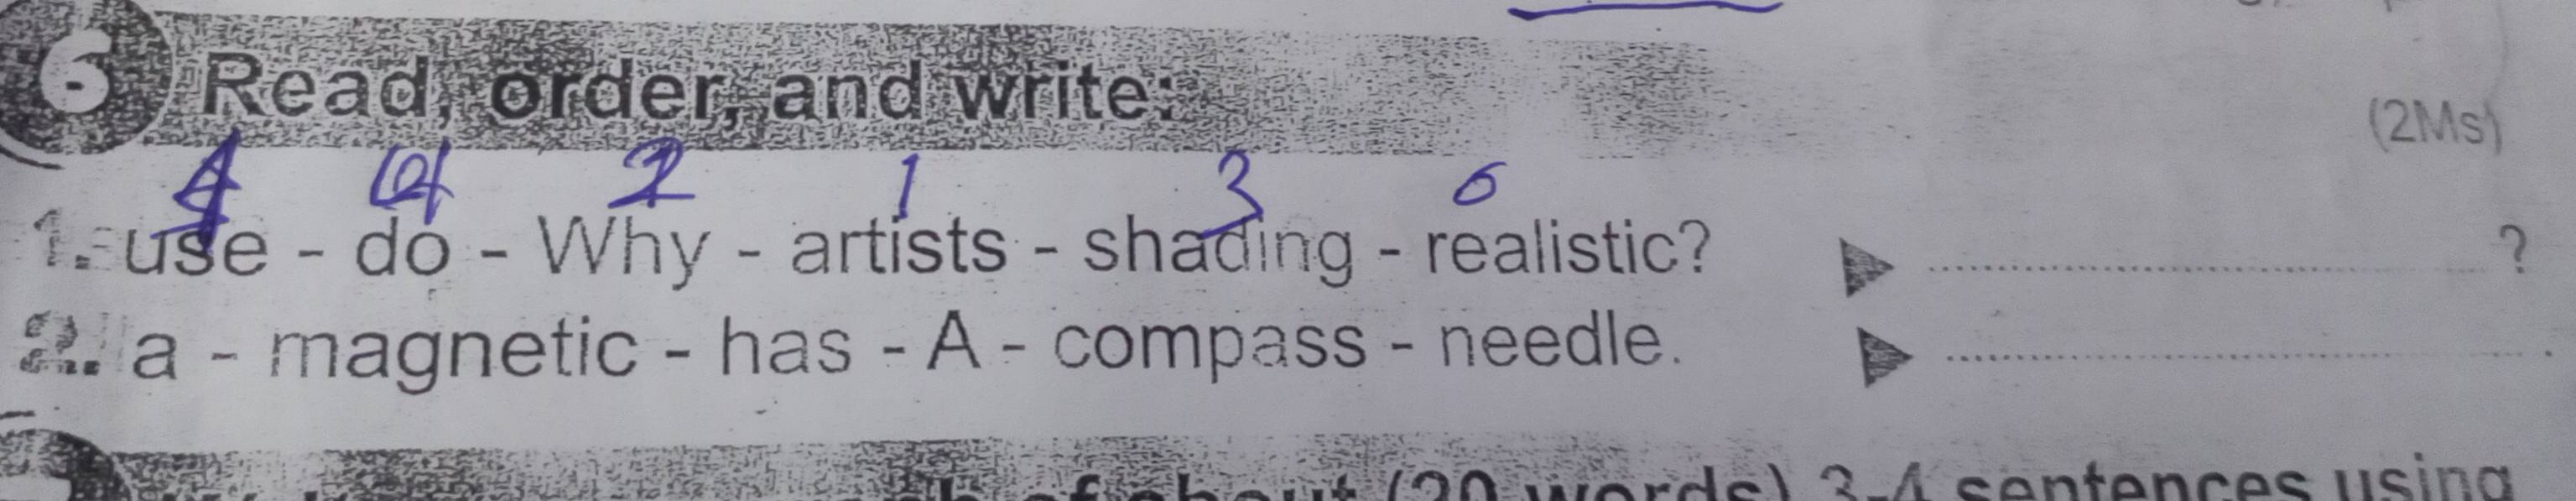 6 Read, order, and write:
(2Ms)
1 3 6
1. use - do - Why - artists - shading - realistic? ........ ?
2. a - magnetic - has - A - compass - needle. ........ .
of about (20 words) 3-4 sentences using